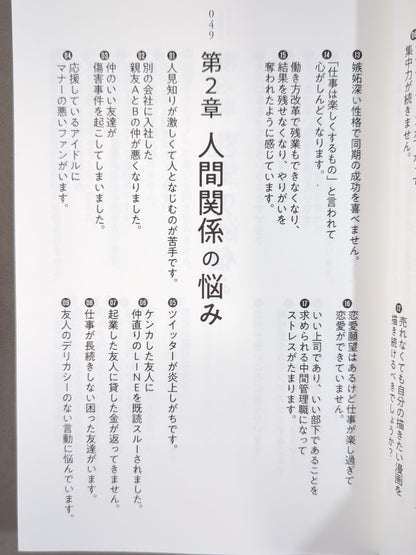 集中力が続きません。
⑫
売れなくても自分の描きたい漫画を
描き続けるべきでしょうか?
⑬
嫉妬深い性格で同期の成功を喜べません。
⑭
「仕事は楽しくするもの」と言われて
心がしんどくなります。
⑮
働き方改革で残業もできなくなり、
結果を残せなくなり、やりがいを
奪われたように感じています。
⑯
恋愛願望はあるけど仕事が楽し過ぎて
恋愛ができていません。
⑰
いい上司であり、いい部下であることを
求められる中間管理職になって
ストレスがたまります。
第2章 人間関係の悩み
01
人見知りが激しくて人となじむのが苦手です。
02
別の会社に入社した
親友AとBの仲が悪くなりました。
03
仲のいい友達が
傷害事件を起こしてしまいました。
04
応援しているアイドルに
マナーの悪いファンがいます。
05
ツイッターが炎上しがちです。
06
ケンカした友人に
仲直りのLINEを既読スルーされました。
07
起業した友人に貸した金が返ってきません。
08
仕事が長続きしない困った友達がいます。
09
友人のデリカシーのない言動に悩んでいます。
049